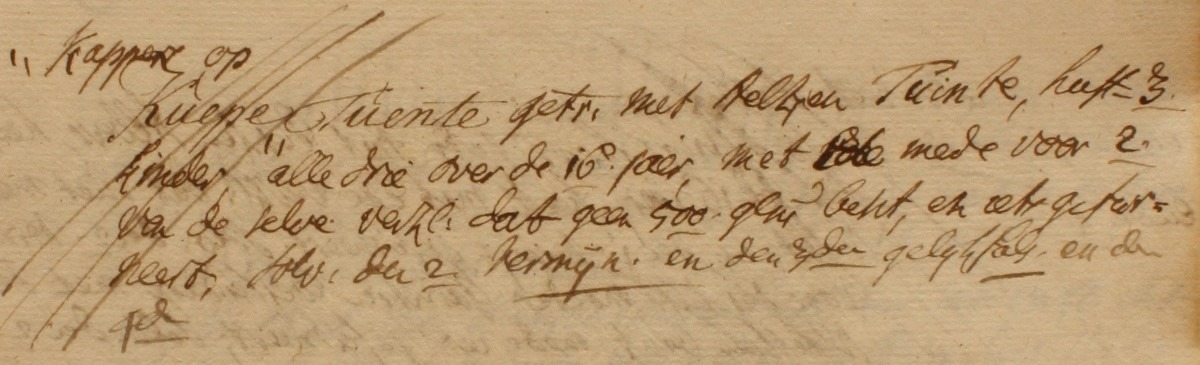 " Kappers op
Kuepe Tuente getr. met Aeltjen Tuinte, heeft 3.
kinder, alle drie over de 16. jaer, met mede voor 2.
van de selve verkl. dat geen 500. glns besit, en
den 2 termijn. en den 3den gelijkfals. en den
4de